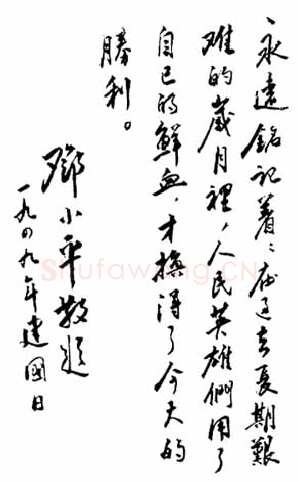 永遠銘記着：在过去長期艱
难的歲月裡，人民英雄們用了
自己的鮮血，才換得了今天的
勝利。
鄧小平敬題
一九四九年建國日
Shufawang.CN